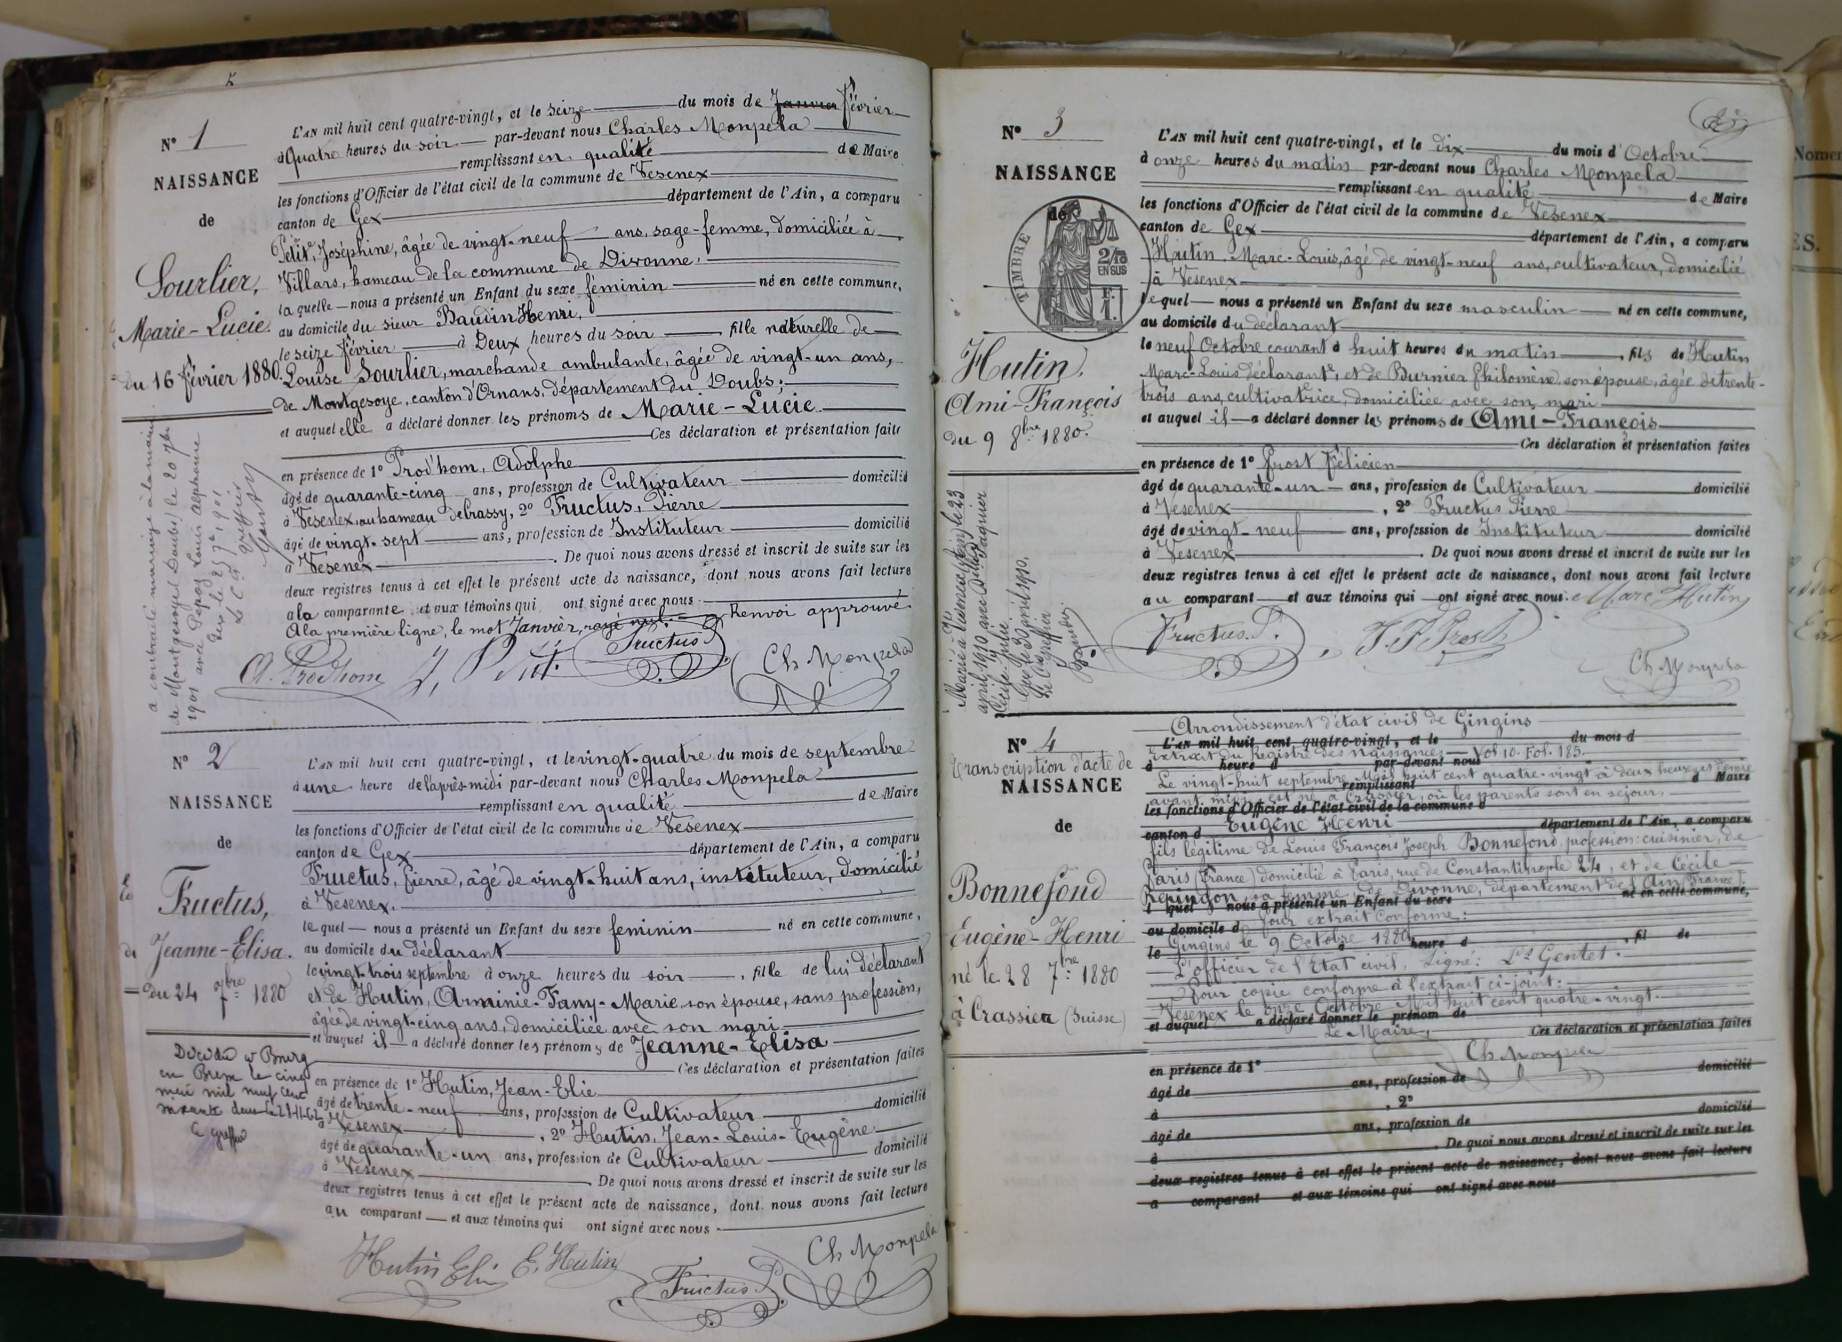 N° 1
NAISSANCE
de
Sourlier,
Marie-Lucie.
du 16 février 1880.
L'AN mil huit cent quatre-vingt, et le seize du mois de Janvier février
à Quatre heures du soir par-devant nous Charles Monpela
remplissant en qualité de Maire
les fonctions d'Officier de l'état civil de la commune de Vesenex
canton de Gex département de l'Ain, a comparu
Petit, Joséphine, âgée de vingt-neuf ans, sage-femme, domiciliée à
Villars, hameau de la commune de Divonne.
la quelle nous a présenté un Enfant du sexe féminin né en cette commune,
au domicile du sieur Baudin Henri,
le seize février à Deux heures du soir fille naturelle de
Louise Sourlier, marchande ambulante, âgée de vingt-un ans,
de Montgesoye, canton d'Ornans, département du Doubs;
et auquel elle a déclaré donner les prénoms de Marie-Lucie
Ces déclaration et présentation faites
en présence de 1° Prod'hom, Adolphe
âgé de quarante-cinq ans, profession de Cultivateur domicilié
à Vesenex, au hameau de Crassy, 2° Fructus, Pierre
âgé de vingt-sept ans, profession de Instituteur domicilié
à Vesenex. De quoi nous avons dressé et inscrit de suite sur les
deux registres tenus à cet effet le présent acte de naissance, dont nous avons fait lecture
a la comparante et aux témoins qui ont signé avec nous.
A la première ligne, le mot Janvier, rayé nul. Renvoi approuvé.
A. Prodhom J. Petit Fructus P. Ch Monpela
a contracté mariage à la mairie
de Montgesoye (Doubs) le 20 7bre
1901 avec Pepoz Louis Alphonse
N° 2
NAISSANCE
de
Fructus,
Jeanne-Elisa.
du 24 7bre 1880
L'AN mil huit cent quatre-vingt, et le vingt-quatre du mois de septembre
à une heure de l'après-midi par-devant nous Charles Monpela
remplissant en qualité de Maire
les fonctions d'Officier de l'état civil de la commune de Vesenex
canton de Gex département de l'Ain, a comparu
Fructus, Pierre, âgé de vingt-huit ans, instituteur, domicilié
à Vesenex.
le quel nous a présenté un Enfant du sexe féminin né en cette commune,
au domicile du déclarant
le vingt-trois septembre à onze heures du soir, fille de lui déclarant
et de Hutin, Arminie-Fany-Marie son épouse, sans profession,
âgée de vingt-cinq ans, domiciliée avec son mari
et auquel il a déclaré donner les prénoms de Jeanne-Elisa
Ces déclaration et présentation faites
en présence de 1° Hutin, Jean-Elie
âgé de trente-neuf ans, profession de Cultivateur domicilié
à Vesenex, 2° Hutin, Jean-Louis-Eugène
âgé de quarante-un ans, profession de Cultivateur domicilié
à Vesenex. De quoi nous avons dressé et inscrit de suite sur les
deux registres tenus à cet effet le présent acte de naissance, dont nous avons fait lecture
au comparant et aux témoins qui ont signé avec nous.
Hutin Elie E. Hutin Fructus P. Ch Monpela
N° 3
NAISSANCE
de
TIMBRE
2/10 EN SUS
Hutin.
Ami-François
du 9 8bre 1880.
L'AN mil huit cent quatre-vingt, et le dix du mois d'Octobre
à onze heures du matin par-devant nous Charles Monpela
remplissant en qualité de Maire
les fonctions d'Officier de l'état civil de la commune de Vesenex
canton de Gex département de l'Ain, a comparu
Hutin Marc-Louis, âgé de vingt-neuf ans, cultivateur, domicilié
à Vesenex
le quel nous a présenté un Enfant du sexe masculin né en cette commune,
au domicile du déclarant
le neuf Octobre courant à huit heures du matin, fils de Hutin
Marc-Louis déclarant, et de Burnier Philomène son épouse, âgée de trente-
trois ans, cultivatrice, domiciliée avec son mari
et auquel il a déclaré donner les prénoms de Ami-François
Ces déclaration et présentation faites
en présence de 1° Prost Félicien
âgé de quarante-un ans, profession de Cultivateur domicilié
à Vesenex, 2° Fructus Pierre
âgé de vingt-neuf ans, profession de Instituteur domicilié
à Vesenex. De quoi nous avons dressé et inscrit de suite sur les
deux registres tenus à cet effet le présent acte de naissance, dont nous avons fait lecture
au comparant et aux témoins qui ont signé avec nous. Marc Hutin
Fructus. P. J. F. Prost Ch Monpela
N° 4
Transcription d'acte de
NAISSANCE
de
Bonnefond
Eugène-Henri
né le 28 7bre 1880
à Crassier (Suisse)
Arrondissement d'état civil de Gingins
L'AN mil huit cent quatre-vingt, et le du mois d
Extrait du Registre des naissances Vol. 10. Fol. 185.
à heure d par-devant nous
Le vingt-huit septembre Mil huit cent quatre-vingt à deux heures et demie
remplissant d Maire
avant midi est né à Crassier, où les parents sont en séjour,
les fonctions d'Officier de l'état civil de la commune d
Eugène Henri
canton d département de l'Ain, a comparu
fils légitime de Louis François Joseph Bonnefond, profession: cuisinier, de
Paris (France) domicilié à Paris, rue de Constantinople 24, et de Cécile
sa femme, de Divonne, département de l'Ain (France).
l quel nous a présenté un Enfant du sexe né en cette commune,
Pour extrait conforme:
au domicile d
Gingins le 9 Octobre 1880
le heure d, fil de
L'officier de l'Etat civil, signé: Ls Gentet.
Pour copie conforme à l'extrait ci-joint:
Vesenex le onze Octobre Mil huit cent quatre-vingt.
et auquel a déclaré donner le prénom de
Le Maire,
Ces déclaration et présentation faites
Ch Monpela
en présence de 1° domicilié
âgé de ans, profession de
à, 2°
âgé de ans, profession de domicilié
à. De quoi nous avons dressé et inscrit de suite sur les
deux registres tenus à cet effet le présent acte de naissance, dont nous avons fait lecture
a comparant et aux témoins qui ont signé avec nous